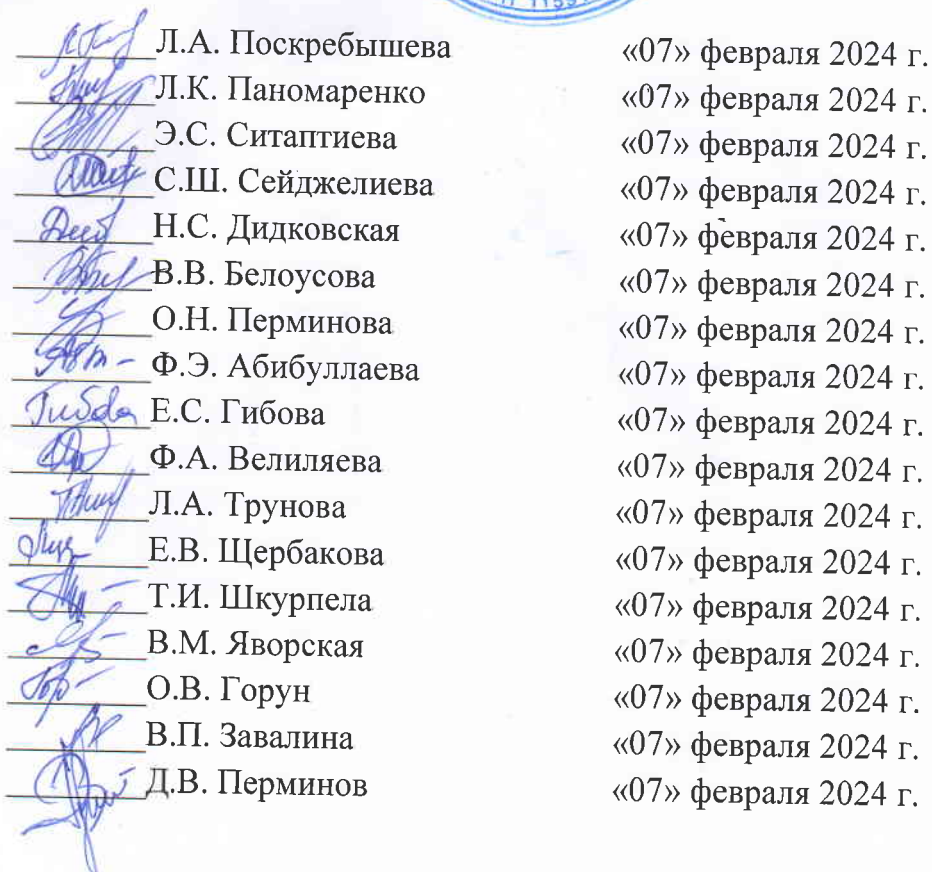 Л.А. Поскребышева «07» февраля 2024 г.
Л.К. Паномаренко «07» февраля 2024 г.
Э.С. Ситаптиева «07» февраля 2024 г.
С.Ш. Сейджелиева «07» февраля 2024 г.
Н.С. Дидковская «07» февраля 2024 г.
В.В. Белоусова «07» февраля 2024 г.
О.Н. Перминова «07» февраля 2024 г.
Ф.Э. Абибуллаева «07» февраля 2024 г.
Гибова Е.С. Гибова «07» февраля 2024 г.
Ф.А. Велиляева «07» февраля 2024 г.
Л.А. Трунова «07» февраля 2024 г.
Е.В. Щербакова «07» февраля 2024 г.
Т.И. Шкурпела «07» февраля 2024 г.
В.М. Яворская «07» февраля 2024 г.
О.В. Горун «07» февраля 2024 г.
В.П. Завалина «07» февраля 2024 г.
Д.В. Перминов «07» февраля 2024 г.